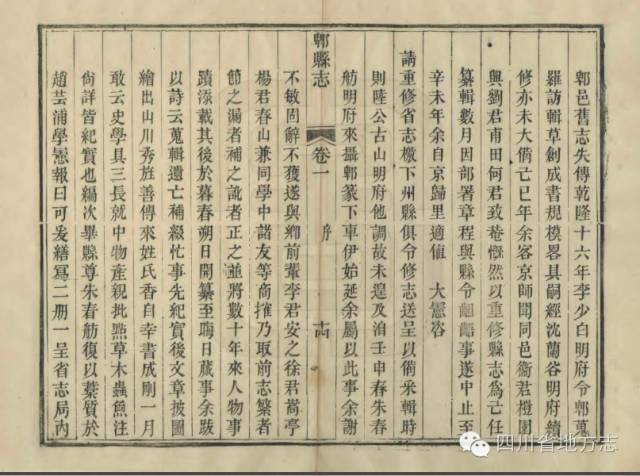 郫邑舊志失傳乾隆十六年李少白明府令郫蒐
羅訪輯草創成書規模畧具嗣經沈蘭谷明府續
修亦未大備己巳年余客京師聞同邑衞君檀園
與劉君甫田何君致菴慨然以重修縣志爲己任
纂輯數月因部署章程與縣令齟齬事遂中止至
辛未年余自京歸里適値 大憲咨
請重修省志檄下州縣俱令修志送呈以備采輯時
則陸公古山明府他調故未遑及洎壬申春朱春
舫明府來攝郫篆下車伊始延余屬以此事余謝
郫縣志 卷一 序 十四
不敏固辭不獲遂與鄉前輩李君安之徐君嵩亭
楊君春山兼同學中諸友等商搉乃取前志纂者
節之漏者補之訛者正之並將數十年來人物事
蹟添載其後於暮春朔日開纂至晦日蕆事余跋
以詩云蒐輯遺亡補綴忙事先紀實後文章披圖
繪出山川秀旌善傳來姓氏香自幸書成剛一月
敢云史學具三長就中物產親批㸃草木蟲魚注
尙詳皆紀實也編次畢縣尊朱春舫復以藁質於
趙芸浦學憲報曰可爰繕寫二册一呈省志局內
四川省地方志